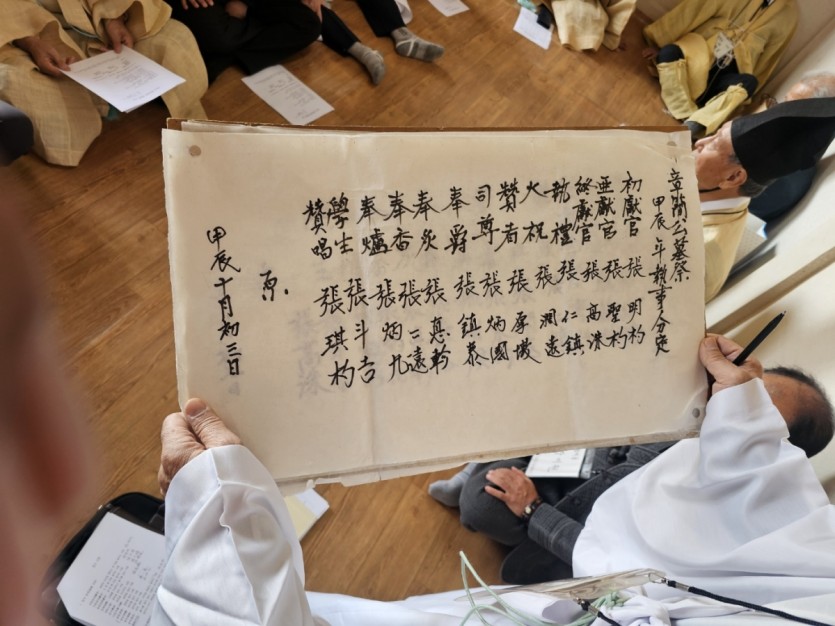 章簡公墓祭
甲辰年執事分定
初獻官 張明杓
亞獻官 張聖杓
終獻官 張高洙
執禮 張仁鎮
大祝 張潤遠
贊者 張厚
司尊 張炳國
奉爵 張鎮泰
奉炙 張幹
奉香 張二遠
奉爐 張炳九
學生 張斗吉
贊唱 張琪杓
原.
甲辰十月初三日